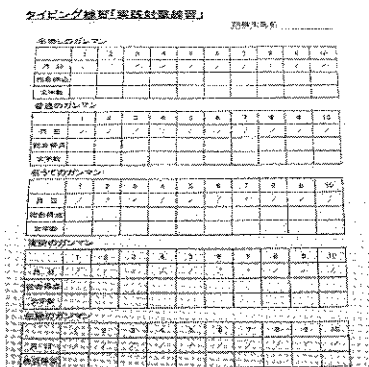 タイピング練習「実践射撃練習」
名無しのガンマン
1 2 3 4 5 6 7 8 9 10
月 日 / / / / / / / / / /
総合得点
文字数
普通のガンマン
1 2 3 4 5 6 7 8 9 10
月 日 / / / / / / / / / /
総合得点
文字数
名うてのガンマン
1 2 3 4 5 6 7 8 9 10
月 日 / / / / / / / / / /
総合得点
文字数
のガンマン
1 2 3 4 5 6 7 8 9 10
月 日 / / / / / / / / / /
総合得点
文字数
のガンマン
1 2 3 4 5 6 7 8 9 10
月 日 / / / / / / / / / /
総合得点